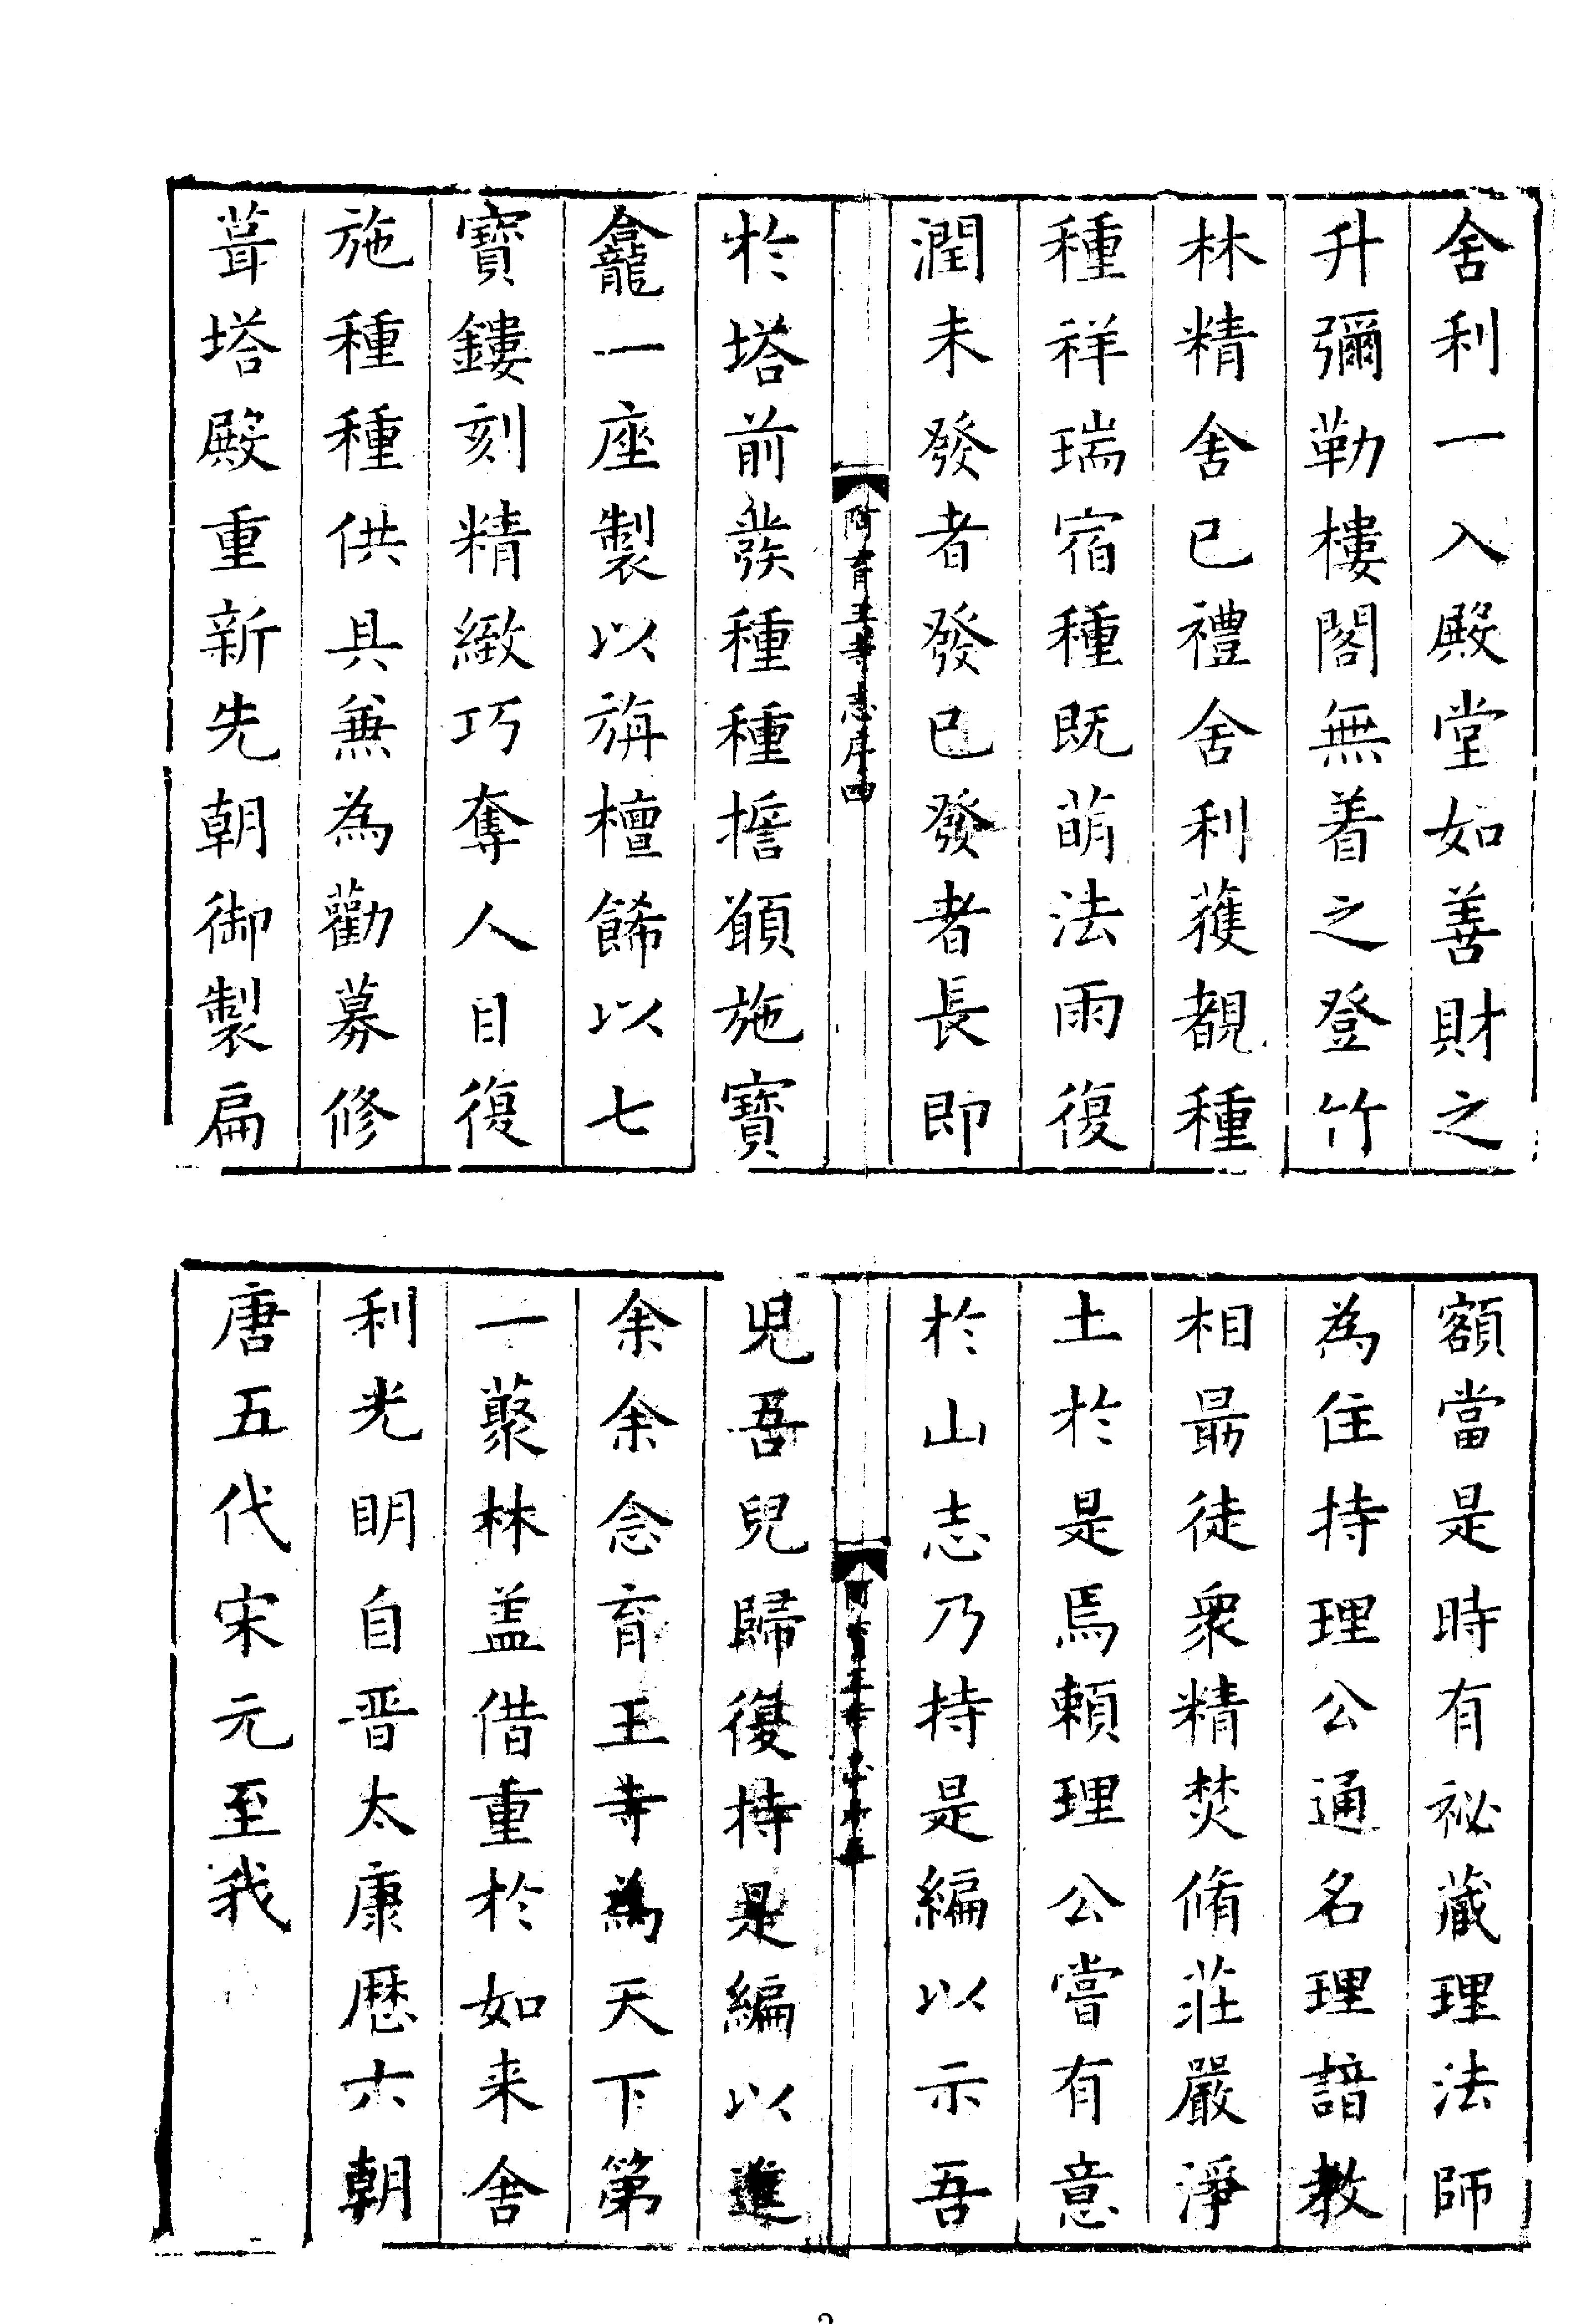 舍利一入殿堂如善財之
升彌勒樓閣無着之登竹
林精舍已禮舍利獲覩種
種祥瑞宿種既萌法雨復
潤未發者發已發者長即
阿育王寺志序四
於塔前發種種擔願施寶
龕一座製以旃檀餙以七
寶鏤刻精緻巧奪人目復
施種種供具兼為勸募修
葺塔殿重新先朝御製扁
額當是時有祕藏理法師
為住持理公通名理諳教
相最徒衆精焚脩莊嚴淨
土於是焉賴理公嘗有意
於山志乃持是編以示吾
阿育王寺志序五
兒吾兒歸復持是編以進
余余念育王寺為天下第
一藂林盖借重於如来舍
利光明自晋太康歷六朝
唐五代宋元至我